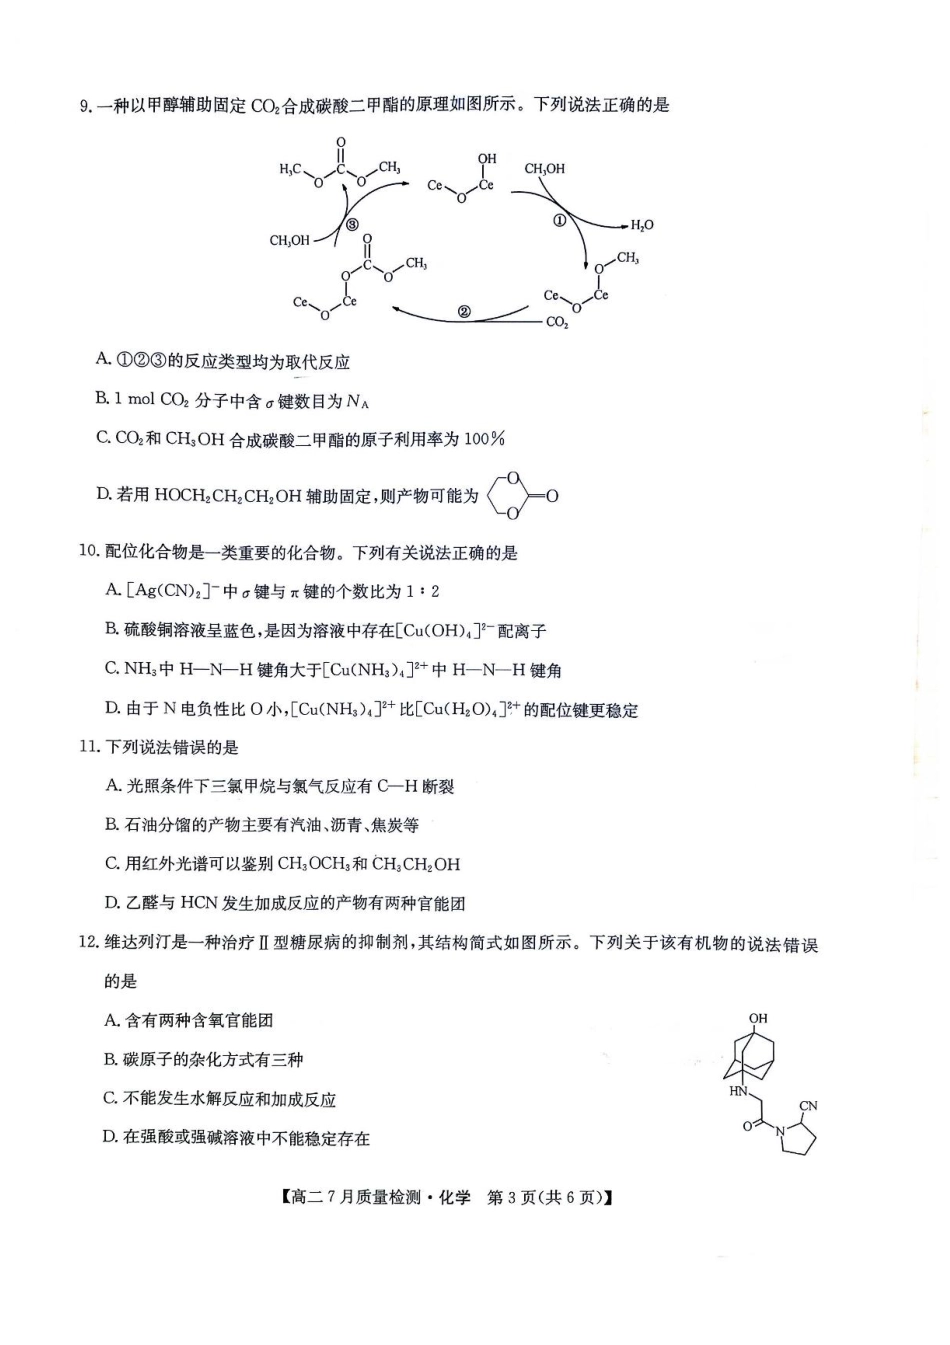 9. 一种以甲醇辅助固定 CO₂合成碳酸二甲酯的原理如图所示。下列说法正确的是
O
H₃C O C O CH₃
OH
Ce O Ce
CH₃OH
①
H₂O
③
CH₃OH
O
C
O O CH₃
Ce O Ce
②
O CH₃
Ce O Ce
CO₂
A. ①②③的反应类型均为取代反应
B. 1 mol CO₂ 分子中含 σ 键数目为 Nᴀ
C. CO₂和 CH₃OH 合成碳酸二甲酯的原子利用率为 100%
D. 若用 HOCH₂CH₂CH₂OH 辅助固定,则产物可能为 O O =O
10. 配位化合物是一类重要的化合物。下列有关说法正确的是
A. [Ag(CN)₂]⁻中 σ 键与 π 键的个数比为 1∶2
B. 硫酸铜溶液呈蓝色,是因为溶液中存在[Cu(OH)₄]²⁻配离子
C. NH₃中 H—N—H 键角大于[Cu(NH₃)₄]²⁺中 H—N—H 键角
D. 由于 N 电负性比 O 小,[Cu(NH₃)₄]²⁺比[Cu(H₂O)₄]²⁺的配位键更稳定
11. 下列说法错误的是
A. 光照条件下三氯甲烷与氯气反应有 C—H 断裂
B. 石油分馏的产物主要有汽油、沥青、焦炭等
C. 用红外光谱可以鉴别 CH₃OCH₃和 CH₃CH₂OH
D. 乙醛与 HCN 发生加成反应的产物有两种官能团
12. 维达列汀是一种治疗Ⅱ型糖尿病的抑制剂,其结构简式如图所示。下列关于该有机物的说法错误
的是
A. 含有两种含氧官能团
B. 碳原子的杂化方式有三种
C. 不能发生水解反应和加成反应
D. 在强酸或强碱溶液中不能稳定存在
OH
HN
CN
O
N
【高二 7 月质量检测·化学 第 3 页(共 6 页)】